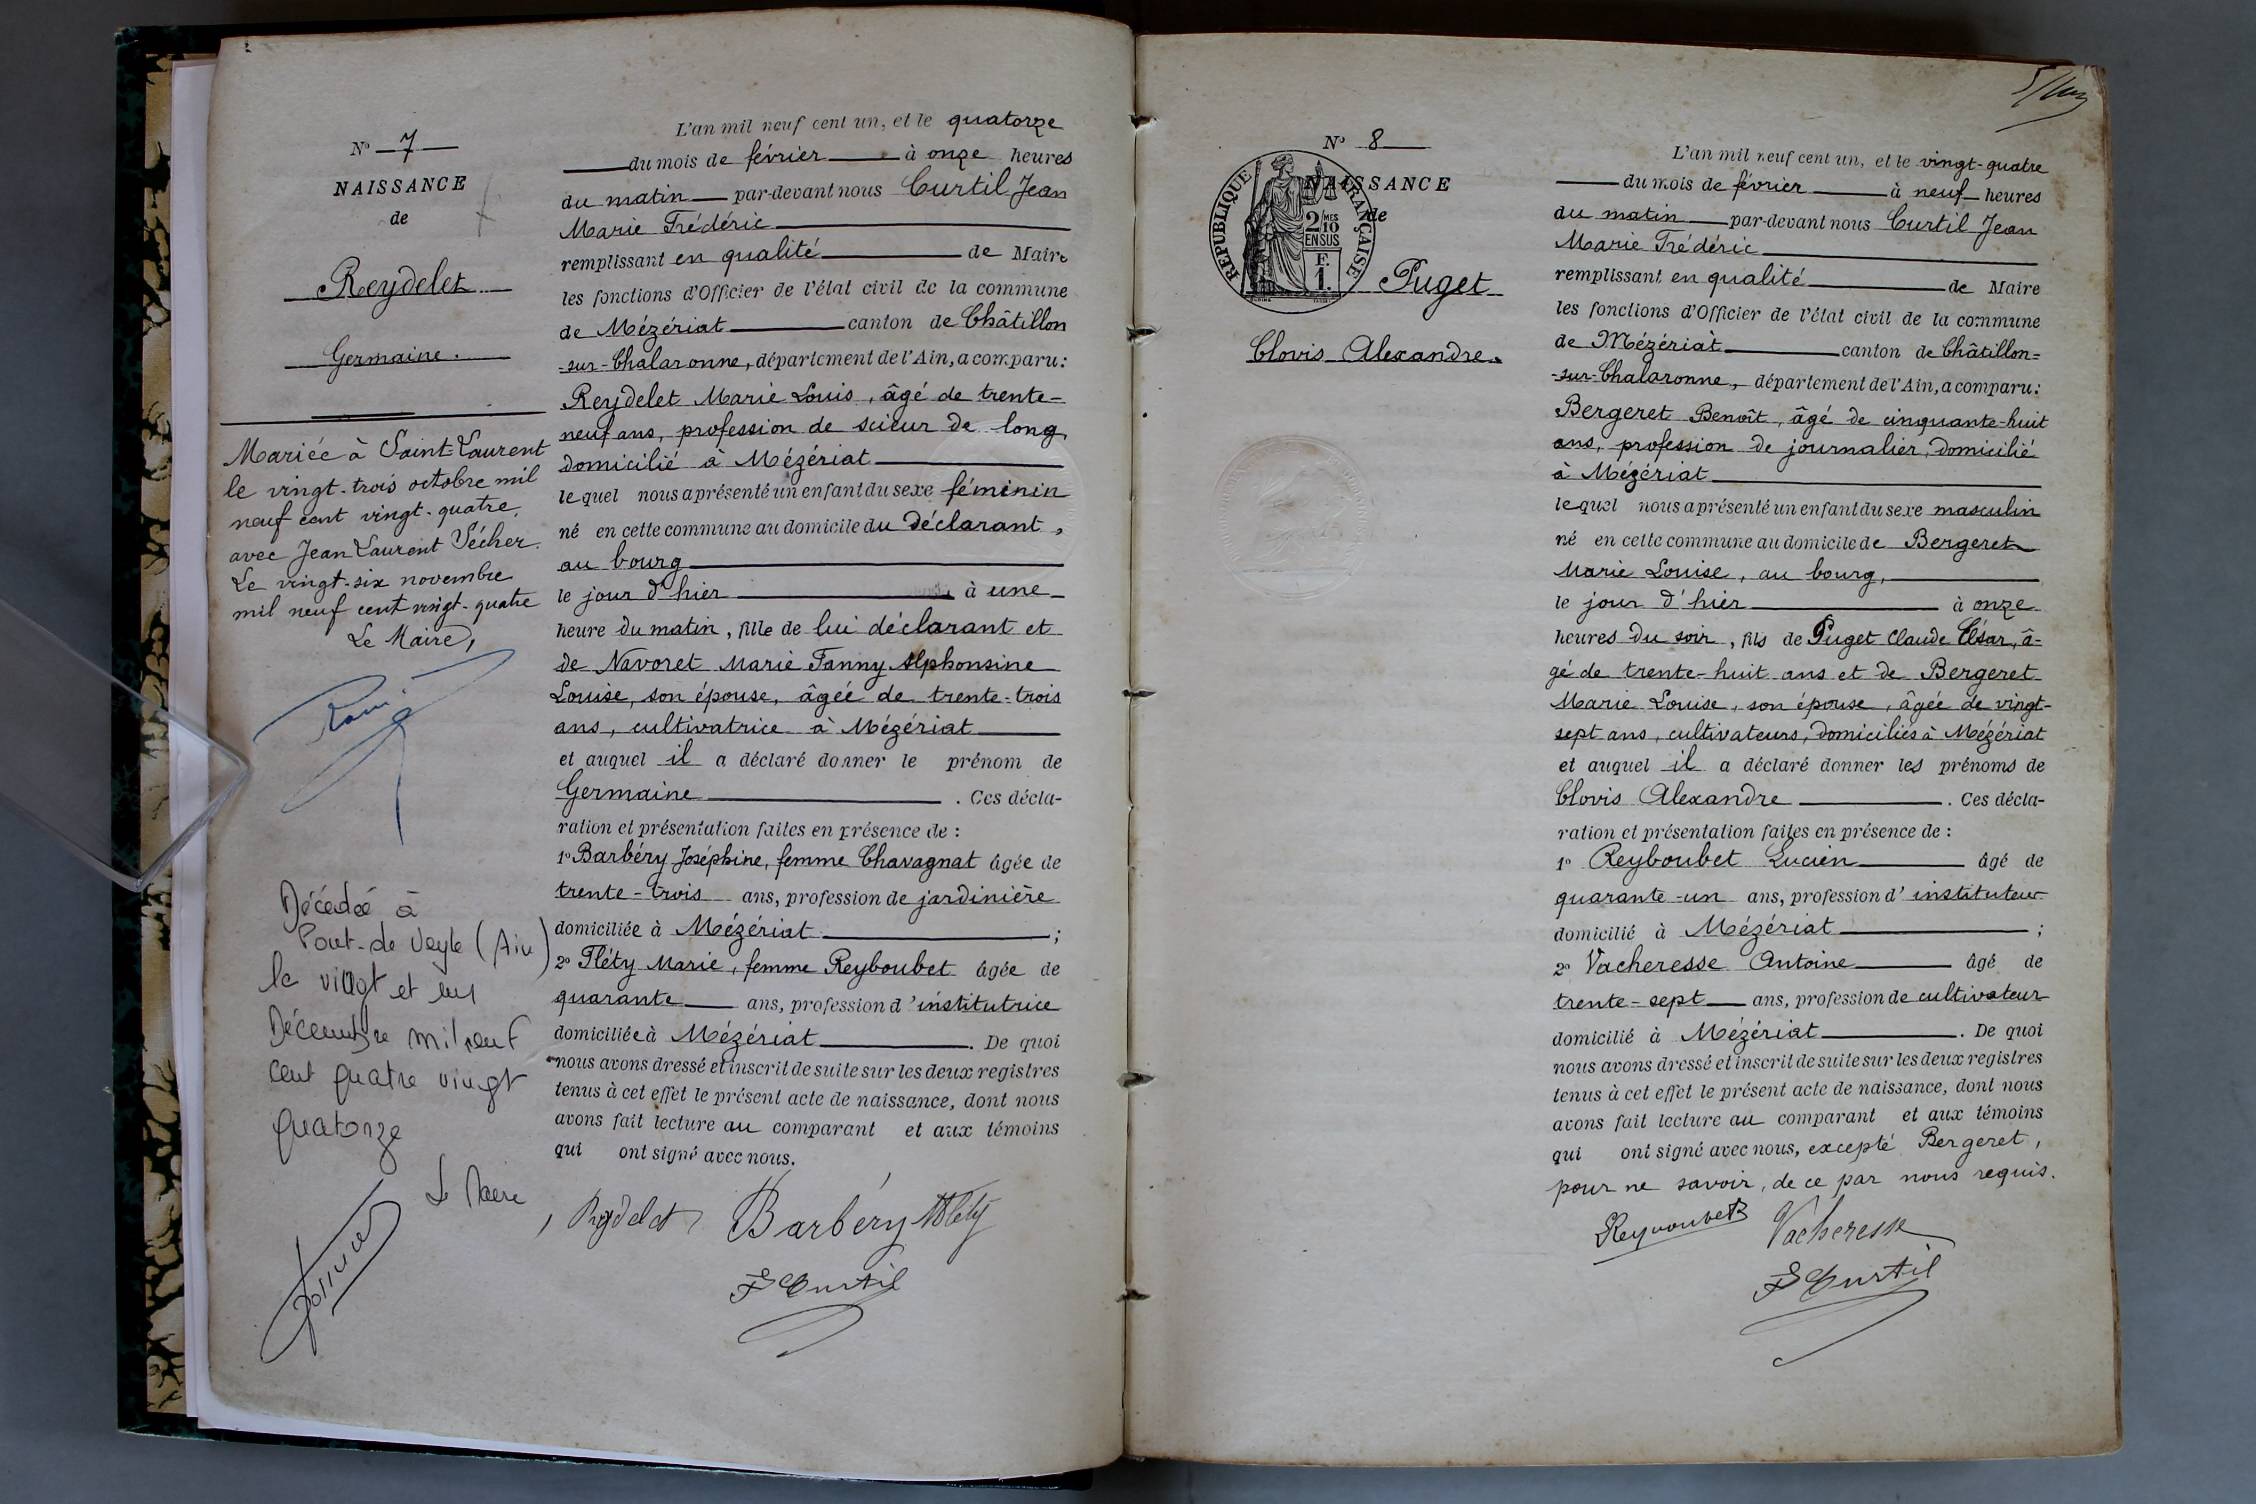 N° 7
NAISSANCE
de
Reydelet
Germaine.
Mariée à Saint-Laurent
le vingt-trois octobre mil
neuf cent vingt-quatre,
avec Jean Laurent Pécher.
Le vingt-six novembre
mil neuf cent vingt-quatre
Le Maire,
Décédée à
Pont-de Veyle (Ain)
le vingt et un
Décembre mil neuf
cent quatre vingt
quatorze
Le Maire
L'an mil neuf cent un, et le quatorze
du mois de février à onze heures
du matin par-devant nous Curtil Jean
Marie Frédéric
remplissant en qualité de Maire
les fonctions d'Officier de l'état civil de la commune
de Mézériat canton de Châtillon
-sur-Chalaronne, département de l'Ain, a comparu:
Reydelet Marie Louis, âgé de trente-
neuf ans, profession de scieur de long,
domicilié à Mézériat
lequel nous a présenté un enfant du sexe féminin
né en cette commune au domicile du déclarant,
au bourg
le jour d'hier à une
heure du matin, fille de lui déclarant et
de Navoret Marie Fanny Alphonsine
Louise, son épouse, âgée de trente-trois
ans, cultivatrice à Mézériat
et auquel il a déclaré donner le prénom de
Germaine. Ces décla-
ration et présentation faites en présence de :
1° Barbéry Joséphine, femme Chavagnat âgée de
trente-trois ans, profession de jardinière
domiciliée à Mézériat ;
2° Fléty Marie, femme Reyboubet âgée de
quarante ans, profession d'institutrice
domiciliée à Mézériat. De quoi
nous avons dressé et inscrit de suite sur les deux registres
tenus à cet effet le présent acte de naissance, dont nous
avons fait lecture au comparant et aux témoins
qui ont signé avec nous.
Reydelet Barbéry M Fléty
F Curtil
N° 8
NAISSANCE
de
REPUBLIQUE FRANÇAISE
2 MES
10
EN SUS
F.
1.
Puget
Clovis Alexandre.
L'an mil neuf cent un, et le vingt-quatre
du mois de février à neuf heures
du matin par-devant nous Curtil Jean
Marie Frédéric
remplissant en qualité de Maire
les fonctions d'Officier de l'état civil de la commune
de Mézériat canton de Châtillon-
-sur-Chalaronne, département de l'Ain, a comparu:
Bergeret Benoît, âgé de cinquante-huit
ans, profession de journalier, domicilié
à Mézériat
lequel nous a présenté un enfant du sexe masculin
né en cette commune au domicile de Bergeret
Marie Louise, au bourg,
le jour d'hier à onze
heures du soir, fils de Puget Claude César, â-
gé de trente-huit ans et de Bergeret
Marie Louise, son épouse, âgée de vingt-
sept ans, cultivateurs, domiciliés à Mézériat
et auquel il a déclaré donner les prénoms de
Clovis Alexandre. Ces décla-
ration et présentation faites en présence de :
1° Reyboubet Lucien âgé de
quarante-un ans, profession d'instituteur
domicilié à Mézériat ;
2° Vacheresse Antoine âgé de
trente-sept ans, profession de cultivateur
domicilié à Mézériat. De quoi
nous avons dressé et inscrit de suite sur les deux registres
tenus à cet effet le présent acte de naissance, dont nous
avons fait lecture au comparant et aux témoins
qui ont signé avec nous, excepté Bergeret,
pour ne savoir, de ce par nous requis.
Reyboubet Vacheresse
F Curtil